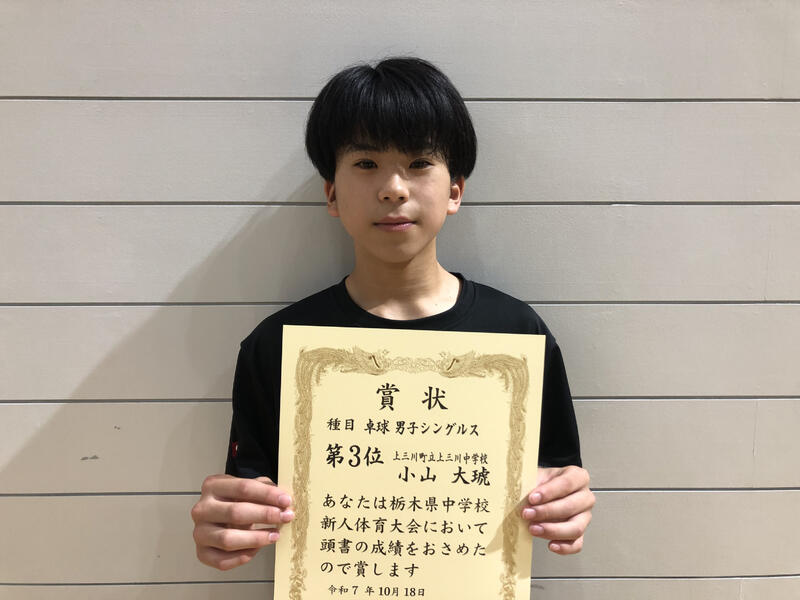 賞状
種目 卓球 男子シングルス
第3位 上三川町立上三川中学校
小山 大琥
あなたは栃木県中学校
新人体育大会において
頭書の成績をおさめた
ので賞します
令和7年10月18日